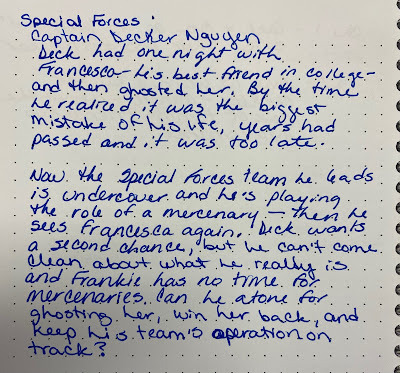 Special Forces:
Captain Decker Nguyen
Deck had one night with
Francesca – his best friend in college –
and then ghosted her. By the time
he realized it was the biggest
mistake of his life, years had
passed and it was too late.
Now the Special Forces team he leads
is undercover and he's playing
the role of a mercenary – then he
sees Francesca again. Deck wants
a second chance, but he can't come
clean about what he really is
and Frankie has no time for
mercenaries. Can he atone for
ghosting her, win her back, and
keep his team's operation on
track?